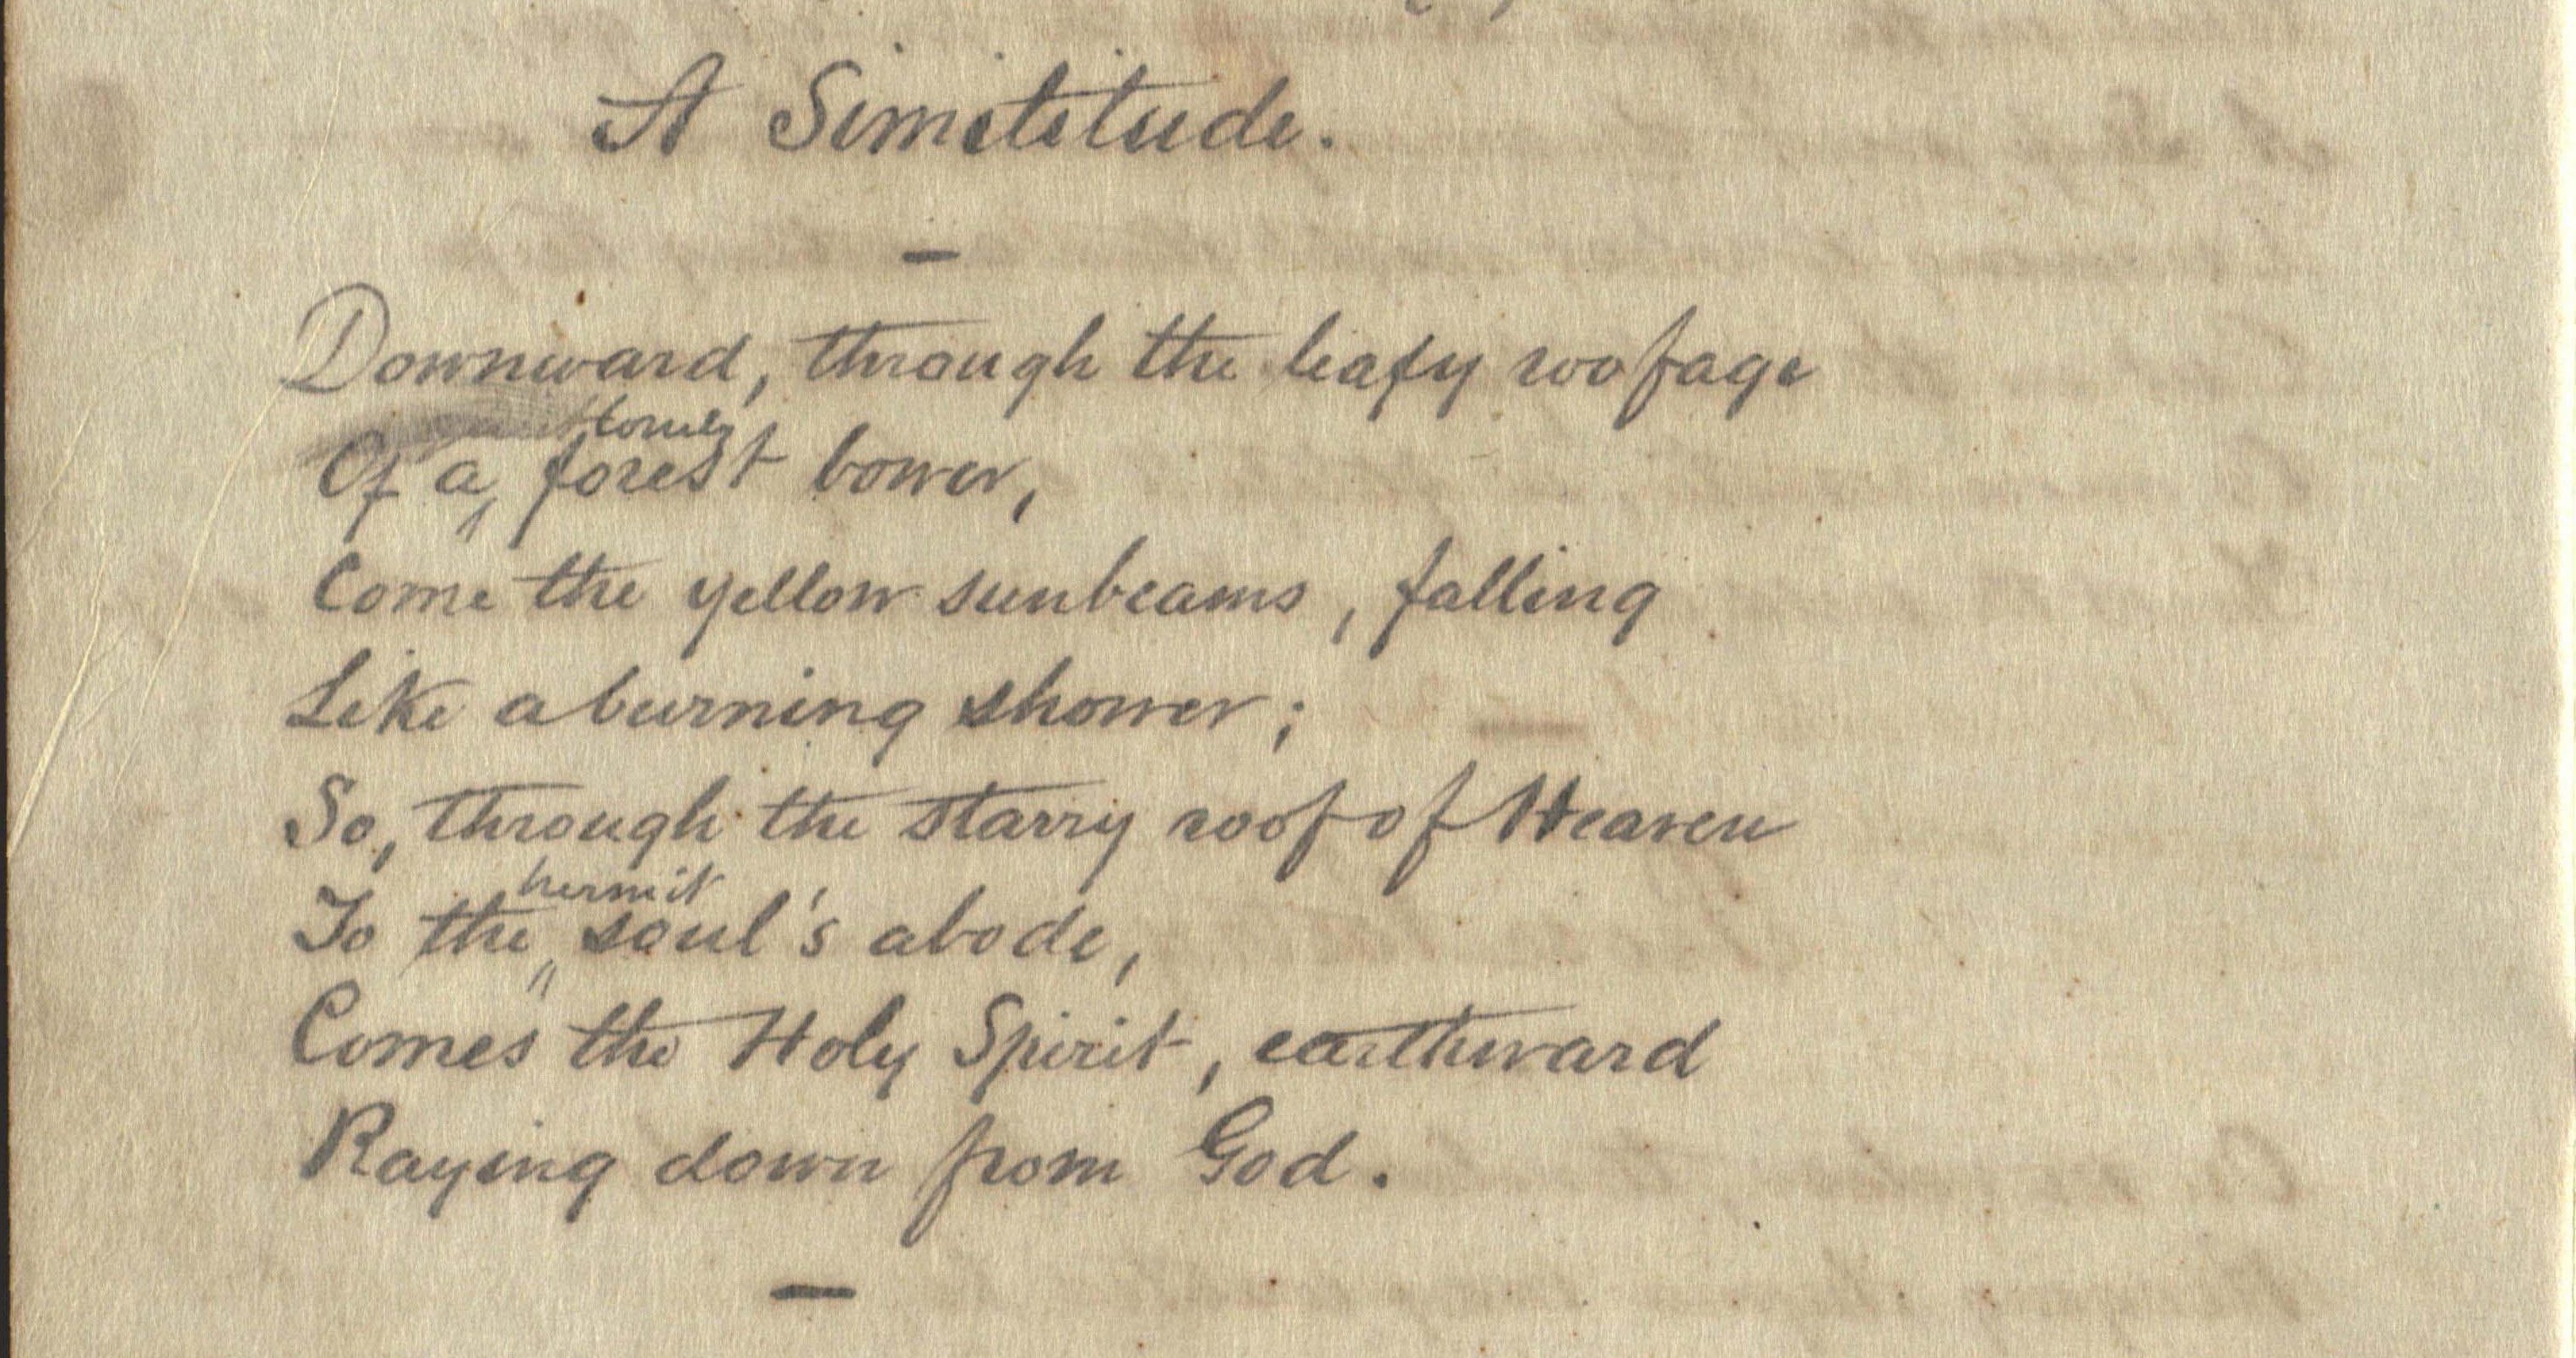 A Similitude.
Downward, through the leafy roofage
lonely
Of a forest bower,
Come the yellow sunbeams, falling
Like a burning shower;
So, through the starry roof of Heaven
hermit
To the soul's abode,
Comes the Holy Spirit, earthward
Raying down from God.